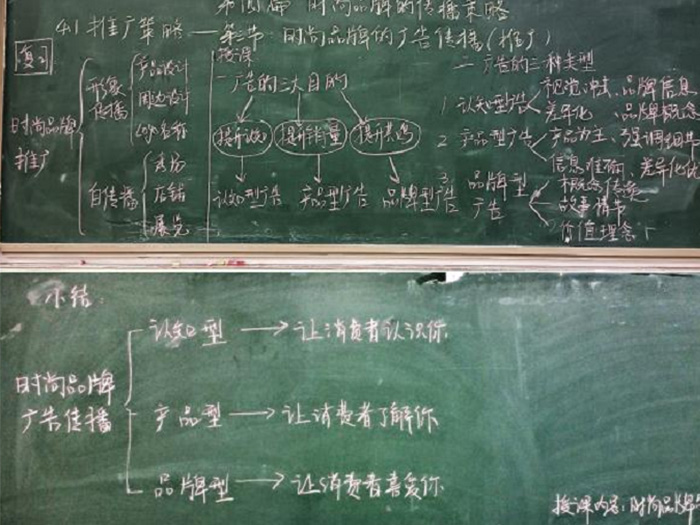 时尚品牌的传播策略
4.1 推广策略——第三节:时尚品牌的广告传播(推广)
复习
时尚品牌
推广
形象
传播
产品设计
周边设计
自传播
秀场
店铺
展览
授课
一 广告的三大目的
提升认知
提升销量
提升共鸣
认知型广告
产品型广告
品牌型广告
二 广告的三种类型
1 认知型广告
视觉冲击、品牌信息
差异化、品牌概念
2 产品型广告
产品为主、强调细节
信息准确、差异化
3 品牌型
广告
概念传袭
故事情节
价值理念
小结:
时尚品牌
广告传播
认知型 → 让消费者认识你
产品型 → 让消费者了解你
品牌型 → 让消费者喜爱你
授课内容:时尚品牌